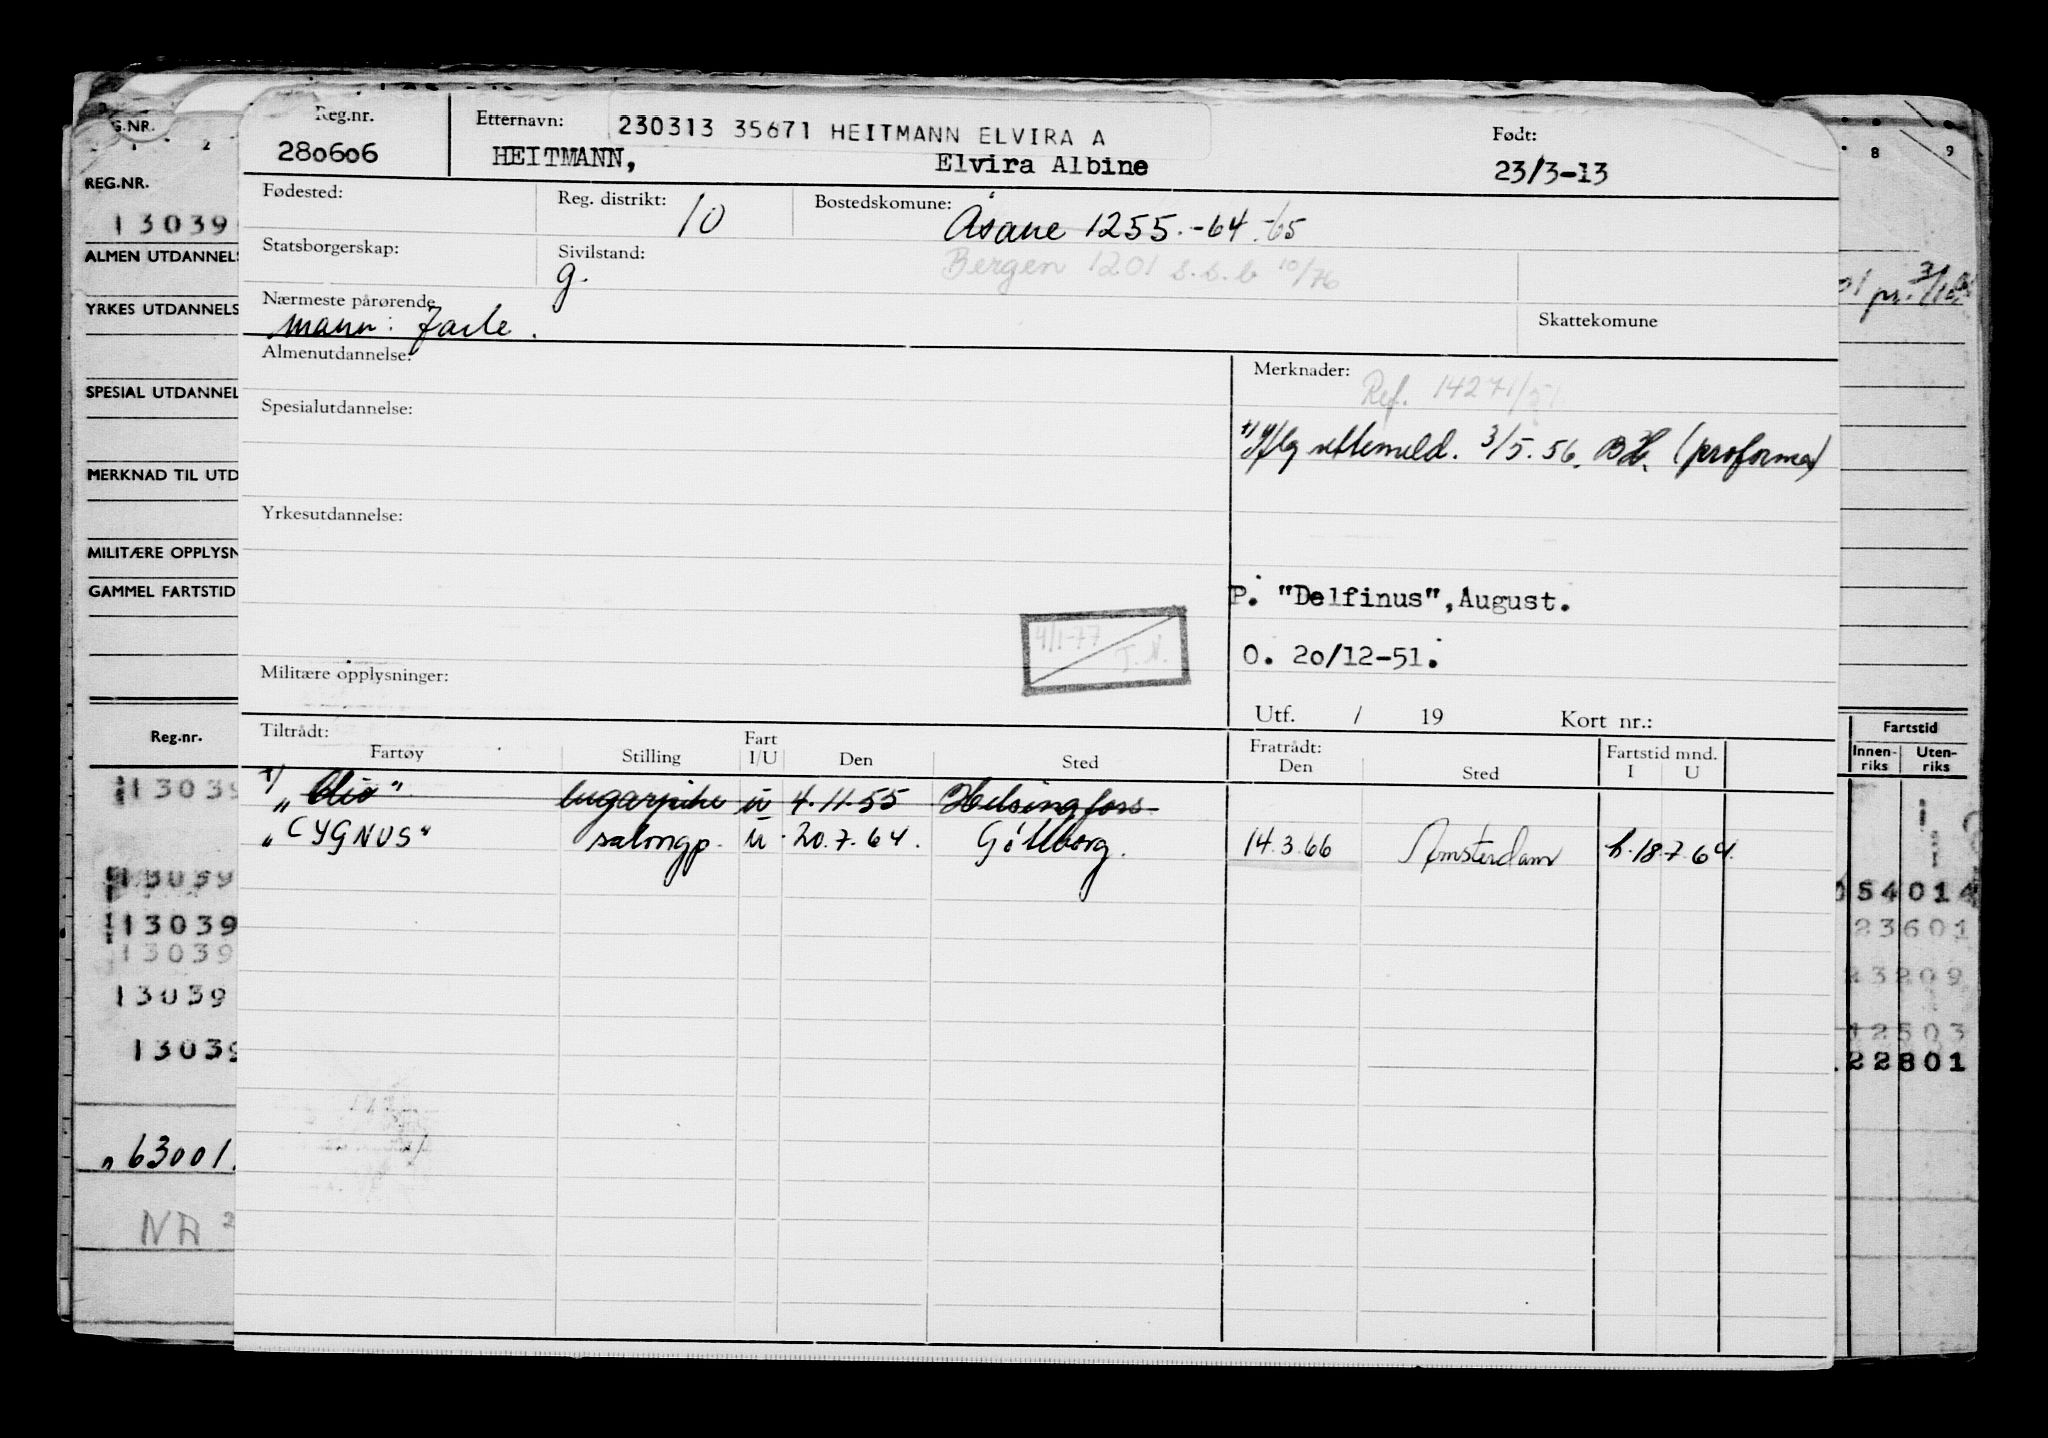 Reg.nr. Etternavn: 230313 35671 HEITMANN ELVIRA A Født:
280606 HEITMANN, Elvira Albine 23/3-13
Fødested: Reg. distrikt: 10 Bostedskomune: Åsane 1255.-64.-65
Statsborgerskap: Sivilstand: g. Bergen 1201 s.s.b 10/76
Nærmeste pårørende mann: Jarle. Skattekomune
Almenutdannelse: Merknader: Ref. 14271/51
Spesialutdannelse:
3/5.56. (proforma)
Yrkesutdannelse:
P. "Delfinus", August.
4/1-77
O. 20/12-51.
Militære opplysninger:
Utf. / 19 Kort nr.:
Tiltrådt: Fart Fratrådt: Fartstid mnd.
Fartøy Stilling I/U Den Sted Den Sted I U
+/ "Clio" lugarpike u 4.11.55 Helsingfors
"CYGNUS" salongp. u 20.7.64. Göteborg. 14.3.66 Amsterdam h.18.7.64.
G.NR.
2
REG.NR.
13039
ALMEN UTDANNELS
YRKES UTDANNELS
SPESIAL UTDANNEL
MERKNAD TIL UTD
MILITÆRE OPPLYSN
GAMMEL FARTSTID
Reg.nr.
13039
13039
13039
13039
13039
13039
63001.
NR 2
8 9
Fartstid
Innen-riks Uten-riks
54014
23601
23209
12503
22801